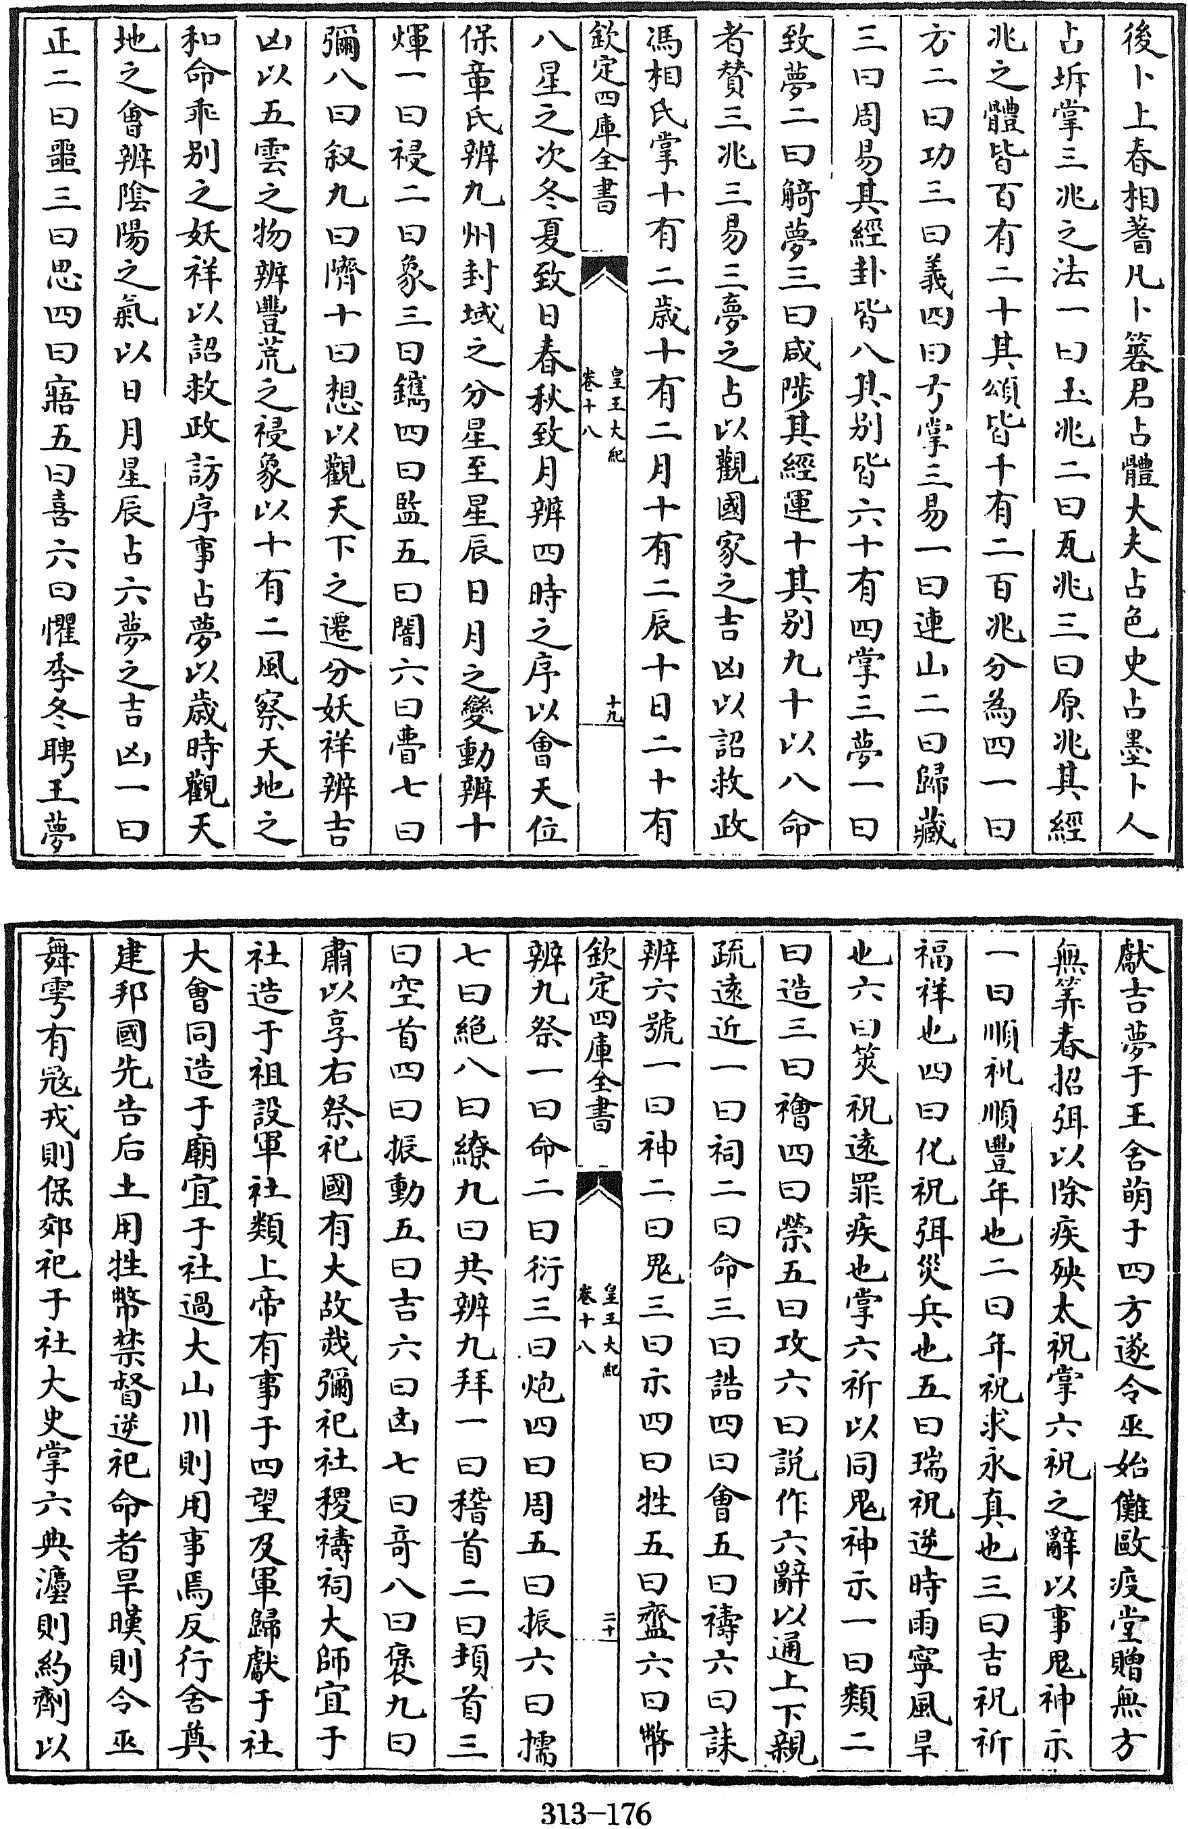 後卜上春相蓍凡卜簭君占體大夫占色史占墨卜人
占坼掌三兆之法一曰玉兆二曰瓦兆三曰原兆其經
兆之體皆百有二十其頌皆千有二百兆分為四一曰
方二曰功三曰義四曰弓掌三易一曰連山二曰歸藏
三曰周易其經卦皆八其别皆六十有四掌三夢一曰
致夢二曰觭夢三曰咸陟其經運十其别九十以八命
者贊三兆三易三夢之占以觀國家之吉凶以詔救政
馮相氏掌十有二歲十有二月十有二辰十日二十有
欽定四庫全書
皇王大紀
卷十八
十九
八星之次冬夏致日春秋致月辨四時之序以會天位
保章氏辨九州封域之分星至星辰日月之變動辨十
煇一曰祲二曰象三曰鑴四曰監五曰闇六曰瞢七曰
彌八曰叙九曰隮十曰想以觀天下之遷分妖祥辨吉
凶以五雲之物辨豐荒之祲象以十有二風察天地之
和命乖别之妖祥以詔救政訪序事占夢以歲時觀天
地之會辨陰陽之氣以日月星辰占六夢之吉凶一曰
正二曰噩三曰思四曰寤五曰喜六曰懼季冬聘王夢
獻吉夢于王舍萌于四方遂令巫始儺毆疫堂贈無方
無筭春招弭以除疾殃太祝掌六祝之辭以事鬼神示
一曰順祝順豐年也二曰年祝求永真也三曰吉祝祈
福祥也四曰化祝弭災兵也五曰瑞祝逆時雨寧風旱
也六曰筴祝遠罪疾也掌六祈以同鬼神示一曰類二
曰造三曰禬四曰禜五曰攻六曰説作六辭以通上下親
疏遠近一曰祠二曰命三曰誥四曰會五曰禱六曰誄
辨六號一曰神二曰鬼三曰示四曰牲五曰齍六曰幣
欽定四庫全書
皇王大紀
卷十八
二十
辨九祭一曰命二曰衍三曰炮四曰周五曰振六曰擩
七曰絶八曰繚九曰共辨九拜一曰稽首二曰頓首三
曰空首四曰振動五曰吉六曰凶七曰竒八曰襃九曰
肅以享右祭祀國有大故烖彌祀社稷禱祠大師宜于
社造于祖設軍社類上帝有事于四望及軍歸獻于社
大會同造于廟宜于社過大山川則用事焉反行舍奠
建邦國先告后土用牲幣禁督逆祀命者旱暵則令巫
舞雩有寇戎則保郊祀于社大史掌六典灋則約劑以
313-176